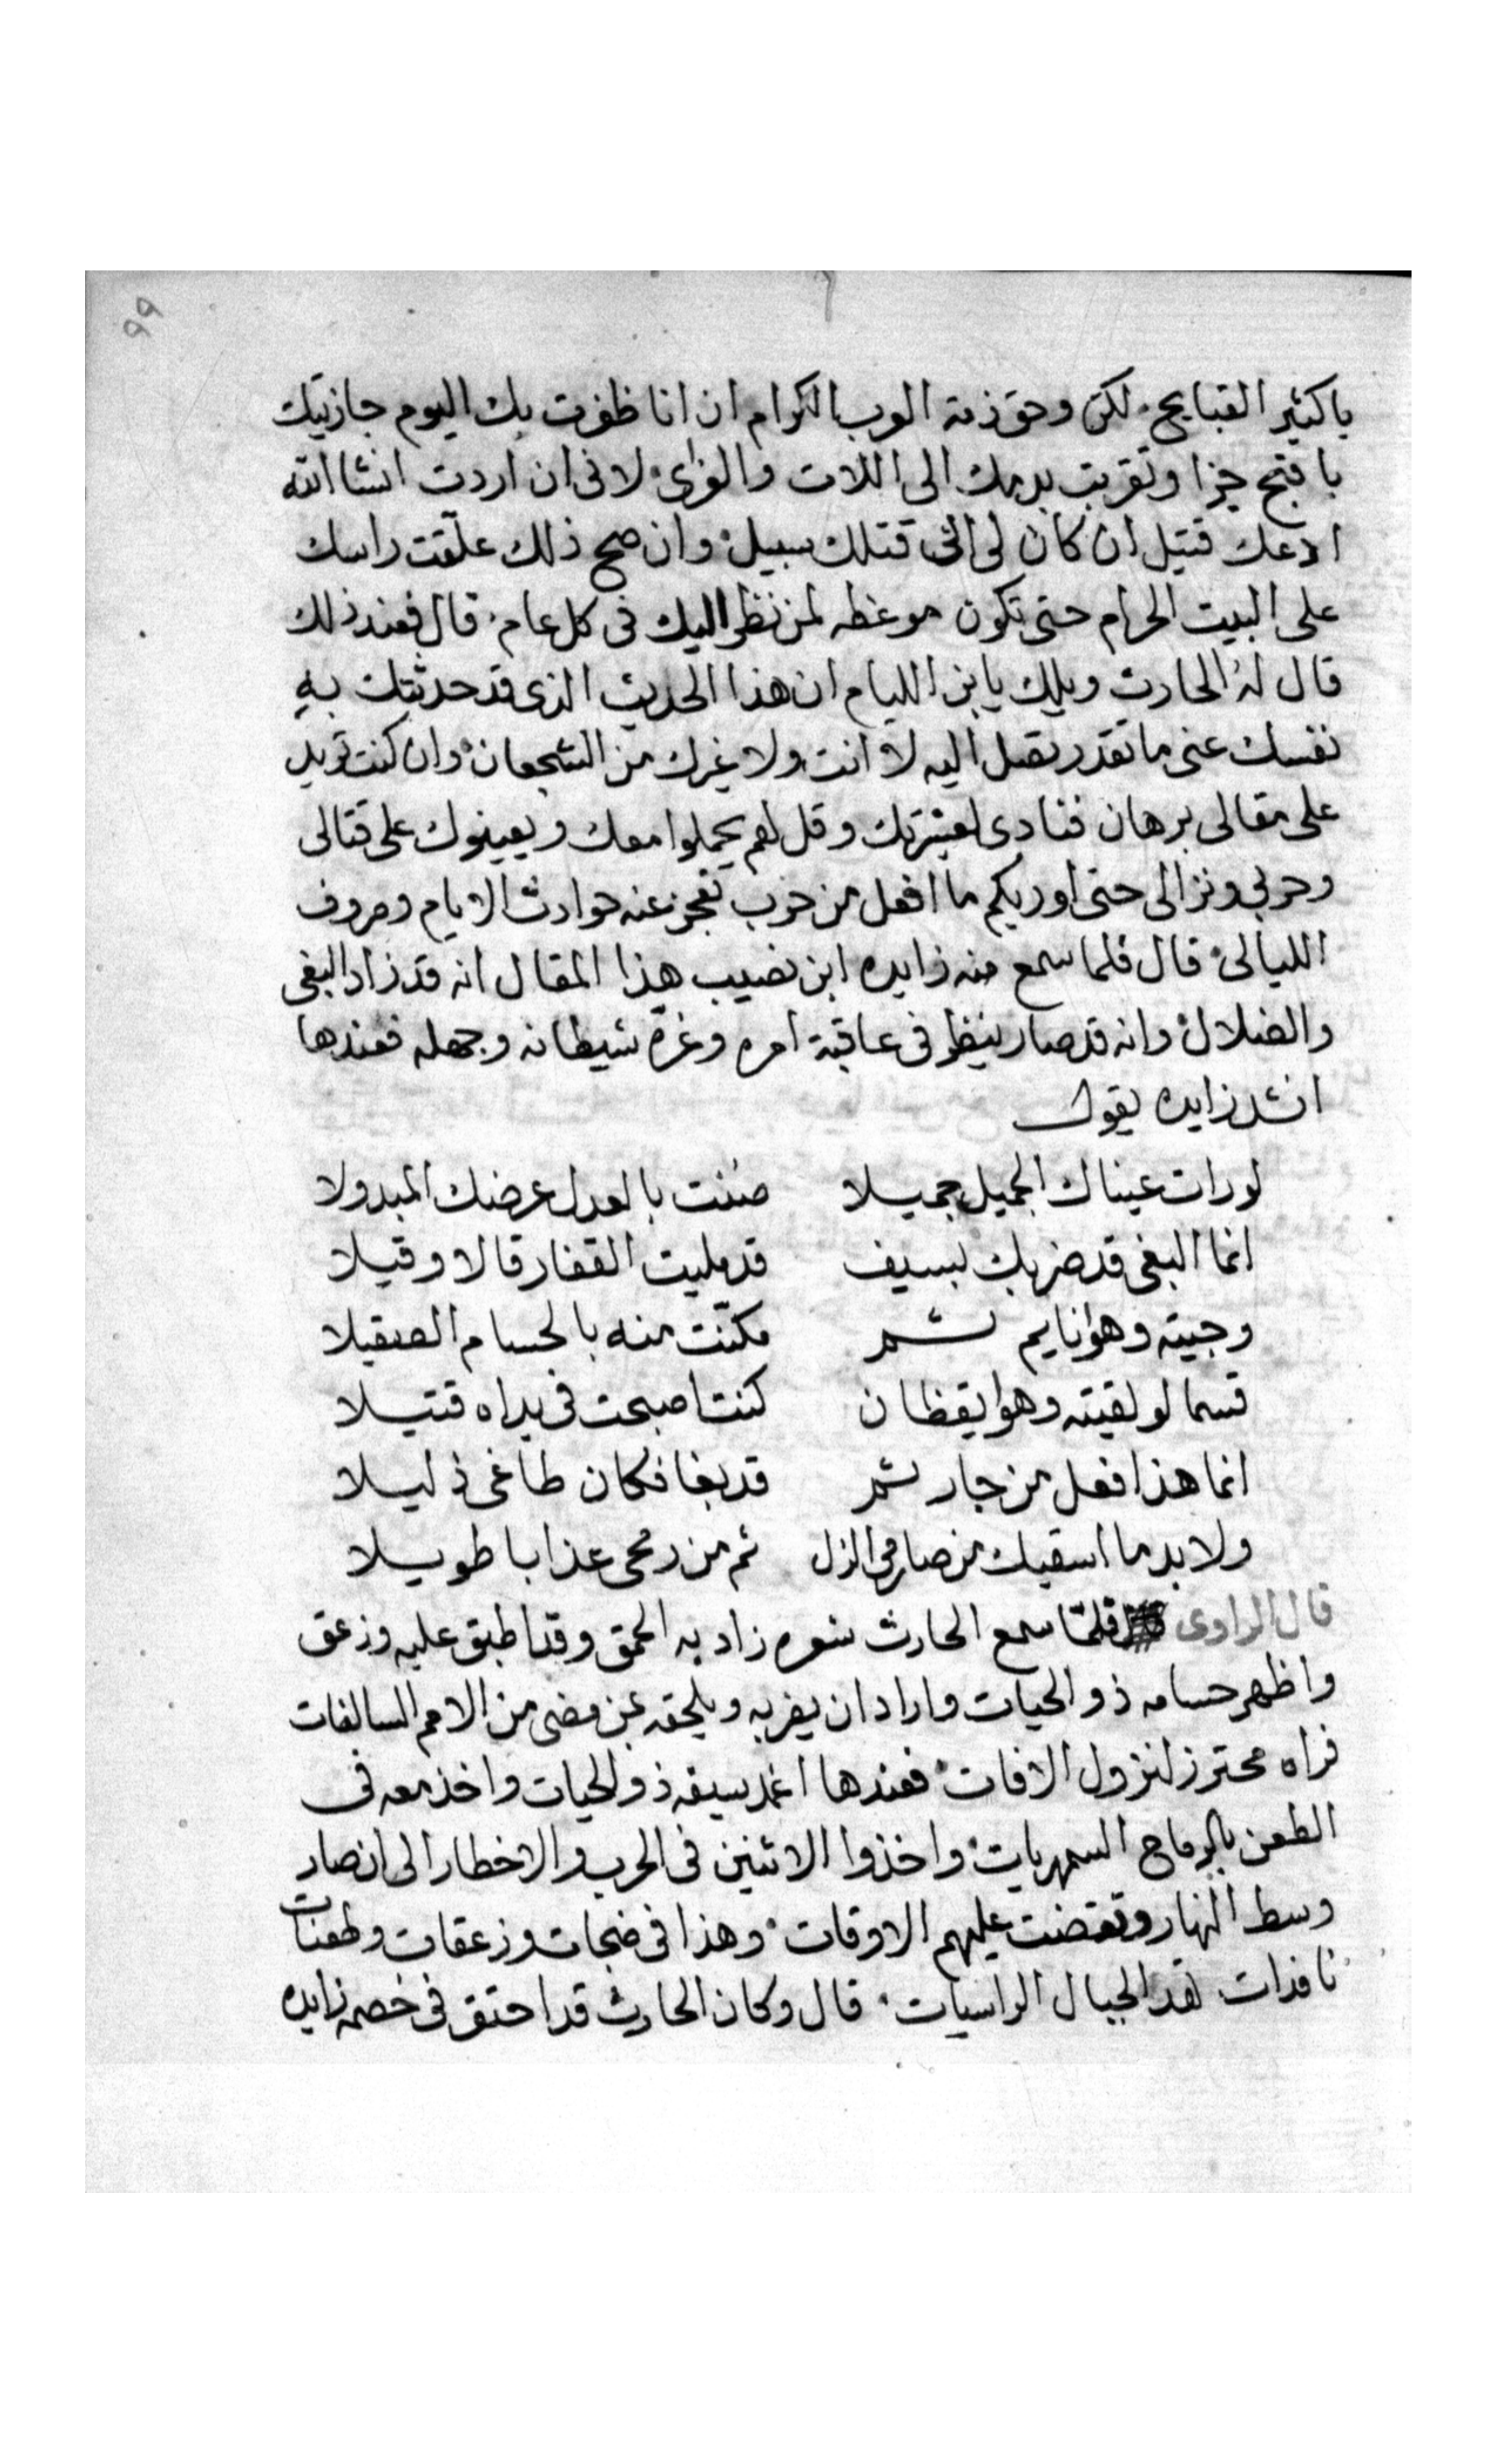 ٩٩
ياكثير القبايح لكن وحق ذمة العرب الكرام ان انا ظفرت بك اليوم جازيتك
باقبح جزا وتقربت بدمك الى اللات والعزى لانى ان اردت انشا الله
ادعك قتيل ان كان لى الى قتلك سبيل وان صح ذلك علّقت راسك
على البيت الحرام حتى تكون موعظه لمن نظر اليك فى كل عام قال فعند ذلك
قال لهُ الحارث ويلك يابن الليام ان هذا الحديث الذى قد حدثتك بهِ
نفسك عنى ما تقدر تصل اليه لا انت ولا غيرك من الشجعان وان كنت تريد
على مقالى برهان فنادى لعشيرتك وقل لهم يحملوا معك ويعينوك على قتالى
وحربى ونزالى حتى اوريكم ما افعل من ضرب تعجز عنه حوادث الايام وصروف
الليالى قال فلما سمع منه زايده ابن نصيب هذا المقال انه قد زاد البغى
والضلال وانه قد صار ينظر فى عاقبة امره وغرهُ شيطانه وجهله فعندها
انشد زايده يقول
لو رات عيناك الجميل جميلا صُنت بالعدل عرضك المبدولا
انما البغى قد ضربك بسيف قد مليت القفار قالا وقيلا
وجيته وهوا نايم بشر مكنّت منه بالحسام الصقيلا
قسما لو لقيته وهوا يقظان كنت اصبحت فى يداه قتيلا
انما هذا فعل من جار بشر قد بغا فكان طاغى ذليلا
ولا بد ما اسقيك من صارمى الذل ثم من رمحى عذابا طويلا
قال الراوى فلمّا سمع الحارث شعره زاد به الحمق وقد اطبق عليه وزعق
واظهر حسامه ذو الحيات واراد ان يضربه ويلحقه بمن مضى من الامم السالفات
فراه محترز لنزول الافات فعندها اغمد سيفه ذو الحيات واخذ معه فى
الطعن بالرماح السمهريات واخذوا الاثنين فى الحرب والاخطار الى ان صار
وسط النهار وتقضت عليهم الاوقات وهذا فى ضجات وزعقات وطعنات
نافدات تقد الجبال الراسيات قال وكان الحارث قد احتقر فى خصمه زايده